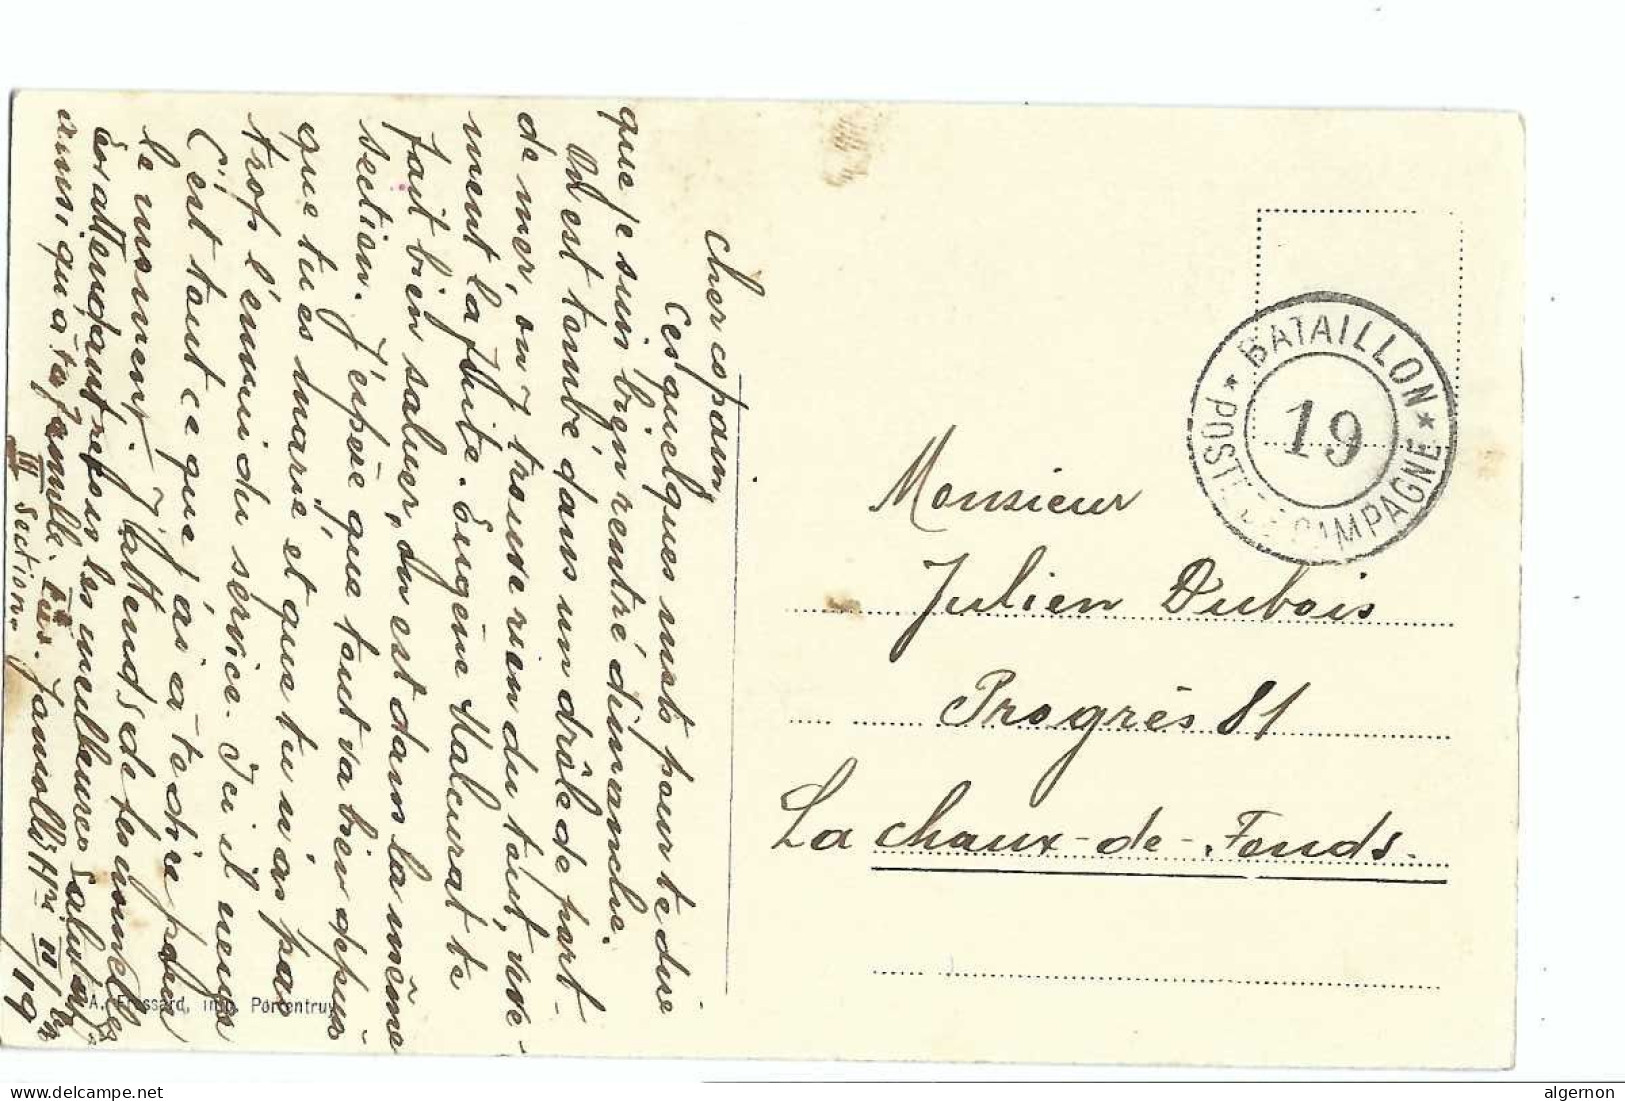 Cher copain
Ces quelques mots pour te dire
que je suis bien rentré dimanche.
On est tombé dans un drôle de port
de mer, ou 7 trouve rien du tout, vive-
ment la fuite. Eugène Malcurat te
fait bien saluer, on est dans la même
section. J'espère que tout va bien depuis
que tu es marié et que tu n'as pas
trop l'ennui du service. Ici il neige
C'est tout ce que j'ai a te dire pour
le moment. J'attends de tes nouvelles
En attendant reçois les meilleures Salutat
ainsi qu'a ta famille.
III Section
II/19
A. Frossard, imp. Porrentruy
BATAILLON
19
POSTE DE CAMPAGNE
Monsieur
Julien Dubois
Progrès 81
La Chaux-de-Fonds.
delcampe.net
algernon